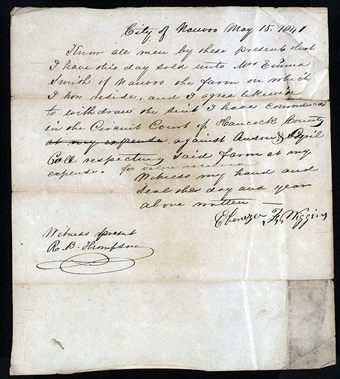 City of Nauvoo May 15. 1841
Know all men by these presents that
I have this day sold unto Mrs Emma
Smith of Nauvoo the farm on which
I now reside, and I agree likewise
to withdraw the suit I have commenced
in the Circuit Court of Hancock County
at my expense against Anson &
Call respecting said farm at my
expense. for value received
Witness my hand and
seal the day and year
above written
Ebenezer F. Wiggins
Witness present
R. B. Thompson